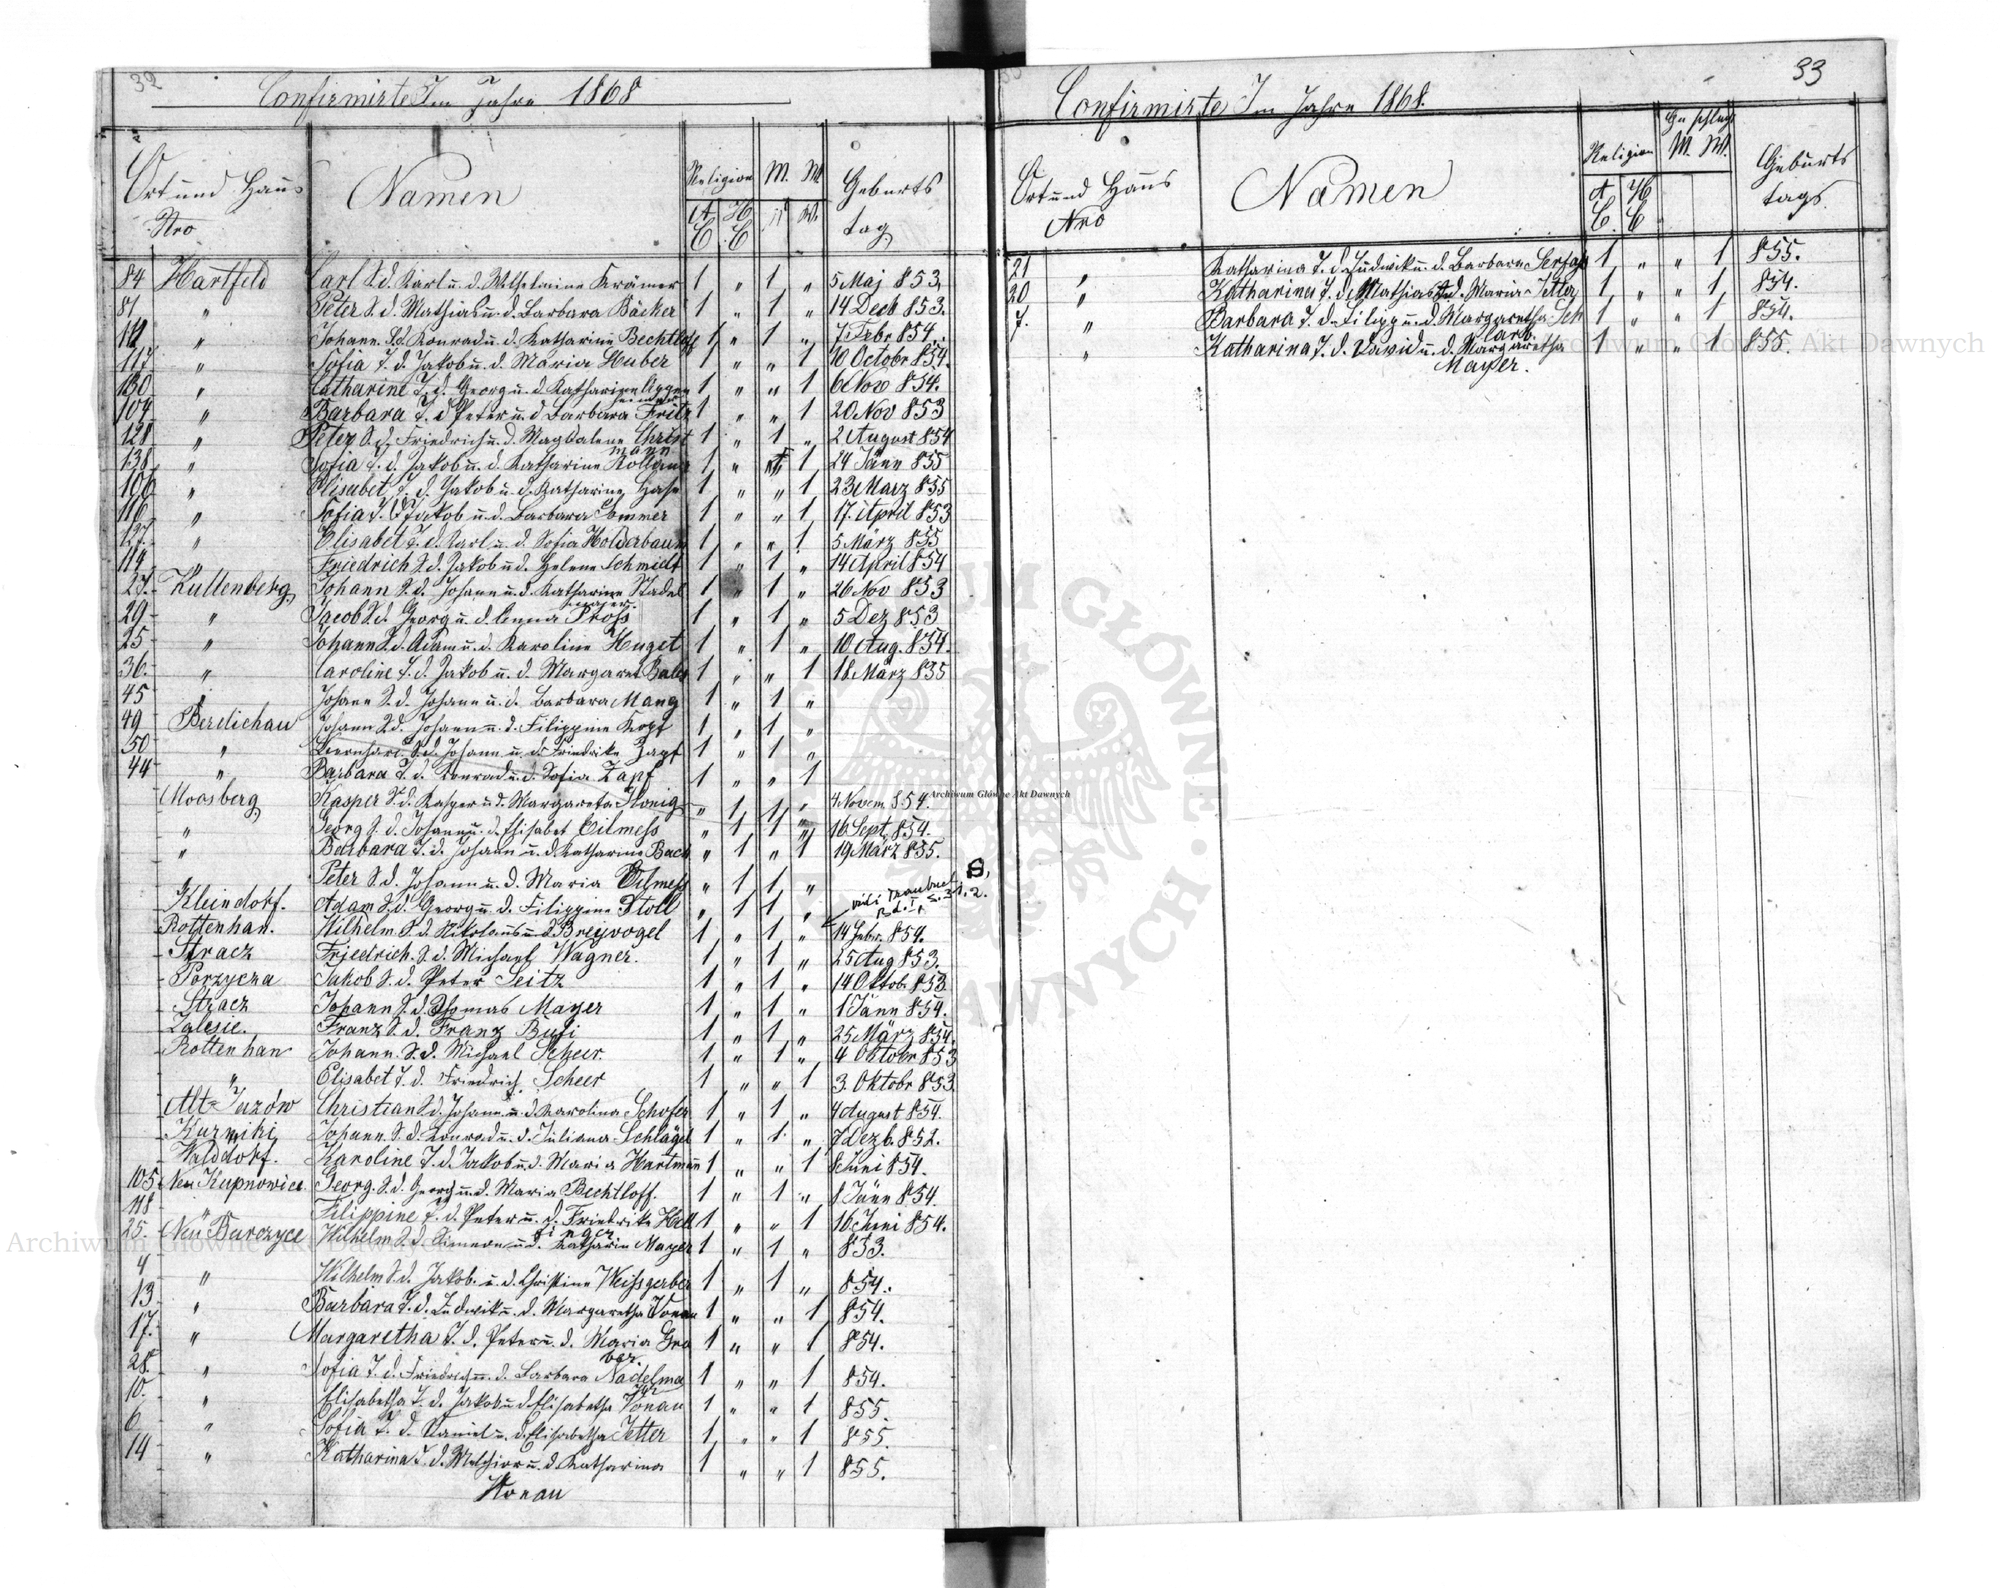 32
Confirmirte Im Jahre 1868
Ort und Haus Nro
Namen
Religion
M. W.
A C
H C
Geburts tag
84 Hartfeld Carl S. d. Karl u. d. Wilhelmine Krämer 1 „ 1 „ 5 Maj 853.
81 „ Peter S. d. Mathias u. d. Barbara Bäcker 1 „ 1 „ 14 Decb 853.
„ Johann S. d. Konrad u. d. Katharine Bechtloff 1 „ 1 „ 7 Febr 854.
117 „ Sofia T. d. Jakob u. d. Maria Huber 1 „ „ 1 Octobr 854.
130 „ Catharine T. d. Georg u. d. Katharine 1 „ „ 1 6 Nov 854.
104 „ Barbara T. d. Peter u. d. Barbara Fritz 1 „ „ 1 20 Nov 853
128 „ Peter S. d. Friedrich u. d. Magdalene Christ 1 „ 1 „ 2 August 854
mann
138 „ Sofia T. d. Jakob u. d. Katharine 1 „ „ 1 24 Jänn 855
106 „ Elisabet T. d. Jakob u. d. Katharine Hahn 1 „ „ 1 23 März 855
116 „ Sofia T. d. Jakob u. d. Barbara Sommer 1 „ „ 1 17. April 853
127. „ Elisabet T. d. Karl u. d. Sofia Holderbaum 1 „ „ 1 5 März 855
114 „ Friedrich S. d. Jakob u. d. Helene Schmidt 1 „ 1 „ 14 April 854
27. Kuttenberg Johann S. d. Johann u. d. Katharine Stadel 1 „ 1 „ 26 Nov 853
majer.
29 „ Jacob S. d. Georg u. d. Anna 1 „ 1 „ 5 Dez 853
25 „ Johann S. d. Adam u. d. Karoline Huget 1 „ 1 „ 10 Aug. 854.
36. „ Caroline T. d. Jakob u. d. Margaret 1 „ „ 1 18 März 855
45 Johann S. d. Johann u. d. Barbara Mang 1 „ 1 „
49 Berdichau Johann S. d. Johann u. d. Filippine Kopf 1 „ 1 „
50 „ Bernhard S. d. Johann u. d. Friedrike Zapf 1 „ 1 „
44 „ Barbara T. d. Konrad u. d. Sofia Zapf 1 „ „ 1
Moosberg Kasper S. d. Kasper u. d. Margareta König „ 1 1 „ 4 Novem 854.
„ Georg S. d. Johann u. d. Elisabet Eilmess „ 1 1 „ 16 Sept. 854.
„ Barbara T. d. Johann u. d. Katharine Bach „ 1 „ 1 19 März 855.
Peter S. d. Johann u. d. Maria Eilmess „ 1 1 „
Kleindorf. Adam S. d. Georg u. d. Filippine Stoll „ 1 1 „
Rottenhan. Wilhelm S. d. Nikolaus u. d. Breyvogel 1 „ 1 „ 14 Febr. 854.
Stracz Friedrich S. d. Michael Wagner. 1 „ 1 „ 25 Aug 853.
Porzycza Jakob S. d. Peter Seitz 1 „ 1 „ 14 Oktob 853
Stracz Johann S. d. Thomas Mayer 1 „ 1 „ 1 Jänn 854.
Zalesie. Franz S. d. Franz 1 „ 1 „ 25 März 854.
Rottenhan Johann S. d. Michael Scheer. 1 „ 1 „ 4 Oktobr 853
„ Elisabet T. d. Friedrich Scheer 1 „ „ 1 3. Oktobr 853.
Alt-Jazów Christian S. d. Johann u. d. Karolina Schofer 1 „ 1 „ 4 August 854.
Kurniki Johann S. d. Konrad u. d. Juliana Schlägel 1 „ 1 „ 7 Dezb. 852.
Walddorf. Karoline T. d. Jakob u. d. Maria Hartmann 1 „ „ 1 8 Juni 854.
105 Neu Kupnowice Georg S. d. Georg u. d. Maria Bechtloff. 1 „ 1 „ 8 Jänn 854.
118 „ Filippine T. d. Peter u. d. Friedrike Hell 1 „ „ 1 16 Juni 854.
finger
25. Neu Burczyce Wilhelm S. d. Simeon u. d. Katharin Mayer 1 „ 1 „ 853.
4 „ Wilhelm S. d. Jakob u. d. Christine Weissgerber 1 „ 1 „ 854.
13 „ Barbara T. d. Ludwik u. d. Margaretha Vonau 1 „ „ 1 854.
17. „ Margaretha T. d. Peter u. d. Maria Gra 1 „ „ 1 854.
ber.
28. „ Sofia T. d. Friedrich u. d. Barbara Nadelma 1 „ „ 1 854.
10. „ Elisabetha T. d. Jakob u. d. Elisabetha Vonau 1 „ „ 1 855.
6 „ Sofia T. d. Daniel u. d. Elisabetha Jetter 1 „ „ 1 855.
14 „ Katharina T. d. Melchior u. d. Katharina 1 „ „ 1 855.
Vonau
33
Confirmirte Im Jahre 1868.
Ort und Haus Nro
Namen
Religion
M. W.
A C.
H C
Geburts tags
21 „ Katharina T. d. Ludwik u. d. Barbara 1 „ „ 1 855.
20 „ Katharina T. d. Mathias u. d. Maria Jetter 1 „ „ 1 854.
7. „ Barbara T. d. Filipp u. d. Margaretha Sch 1 „ „ 1 854.
„ Katharina T. d. David u. d. Margaretha 1 „ „ 1 855.
Mayer.
Archiwum Główne Akt Dawnych